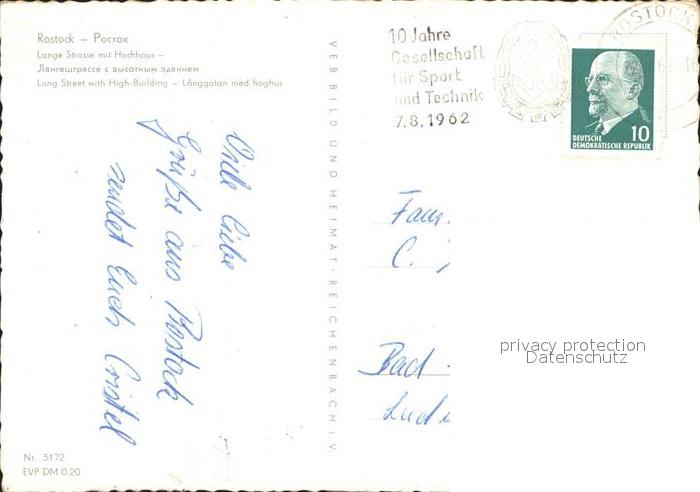 Rostock — Росток
Lange Strasse mit Hochhaus —
Лангештрассе с высотным зданием
Long Street with High-Building — Långgatan med hoghus
Viele liebe
Grüße aus Rostock
sendet Euch Cristel
Nr. 5172
EVP DM 0,20
VEB BILD UND HEIMAT · REICHENBACH i. V.
10 Jahre
Gesellschaft
für Sport
und Technik
7.8.1962
ROSTOCK
10
DEUTSCHE
DEMOKRATISCHE REPUBLIK
Fam.
C.
Bad
privacy protection
Datenschutz